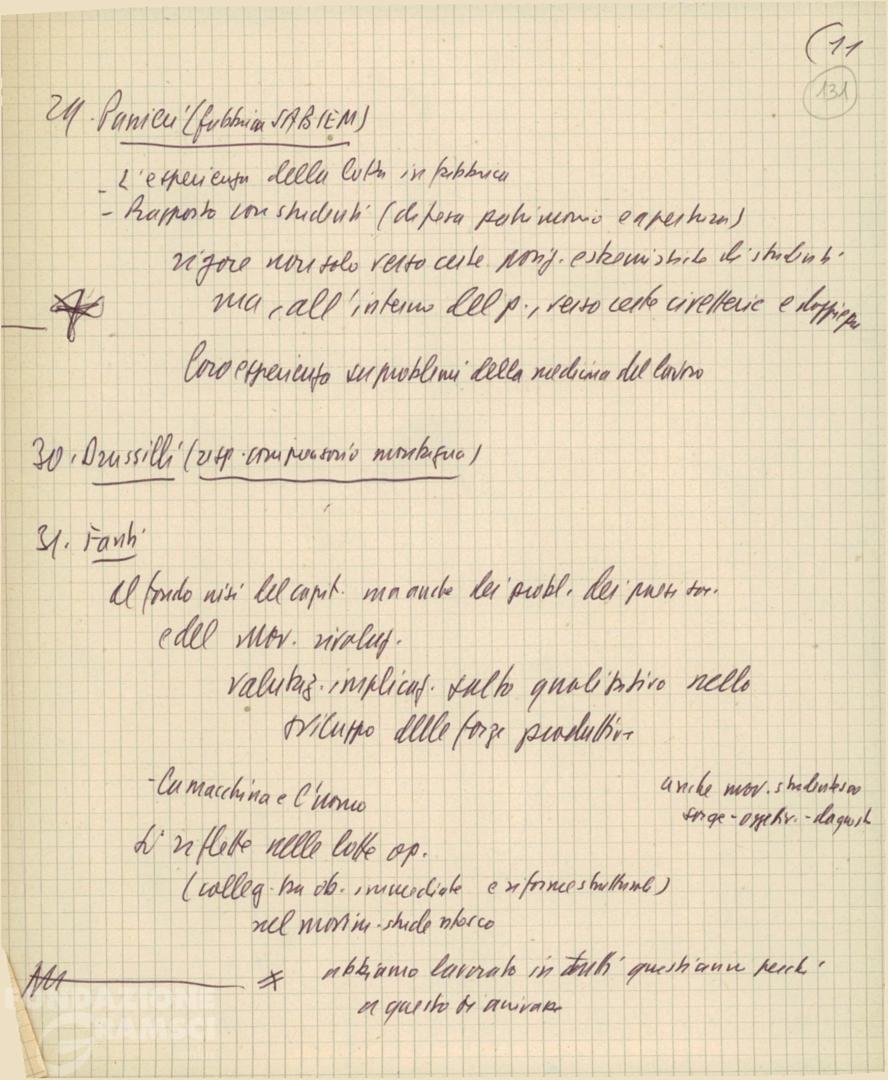 (11
131
29. Panieri (fabbrica SABIEM)
- L'esperienza della lotta in fabbrica
- Rapporto con studenti (difesa patrimonio e apertura)
rigore non solo verso certe posiz. estremistiche di studenti
ma, all'interno del p., verso certe civetterie e
loro esperienza su problemi della medicina del lavoro
30. Drussilli (resp. comprensorio montagna)
31. Fanti
Al fondo crisi del capit. ma anche dei probl. dei paesi soc.
e del mov. rivoluz.
valutaz. implicaz. salto qualitativo nello
sviluppo delle forze produttive
- La macchina e l'uomo
anche mov. studentesco
sorge - oggettiv. - da questo
Si riflette nelle lotte op.
(colleg. tra ob. immediati e riforme strutturali)
nel movim. studentesco
abbiamo lavorato in tutti questi anni perché
a questo si arrivasse
FONDAZIONE
GRAMSCI